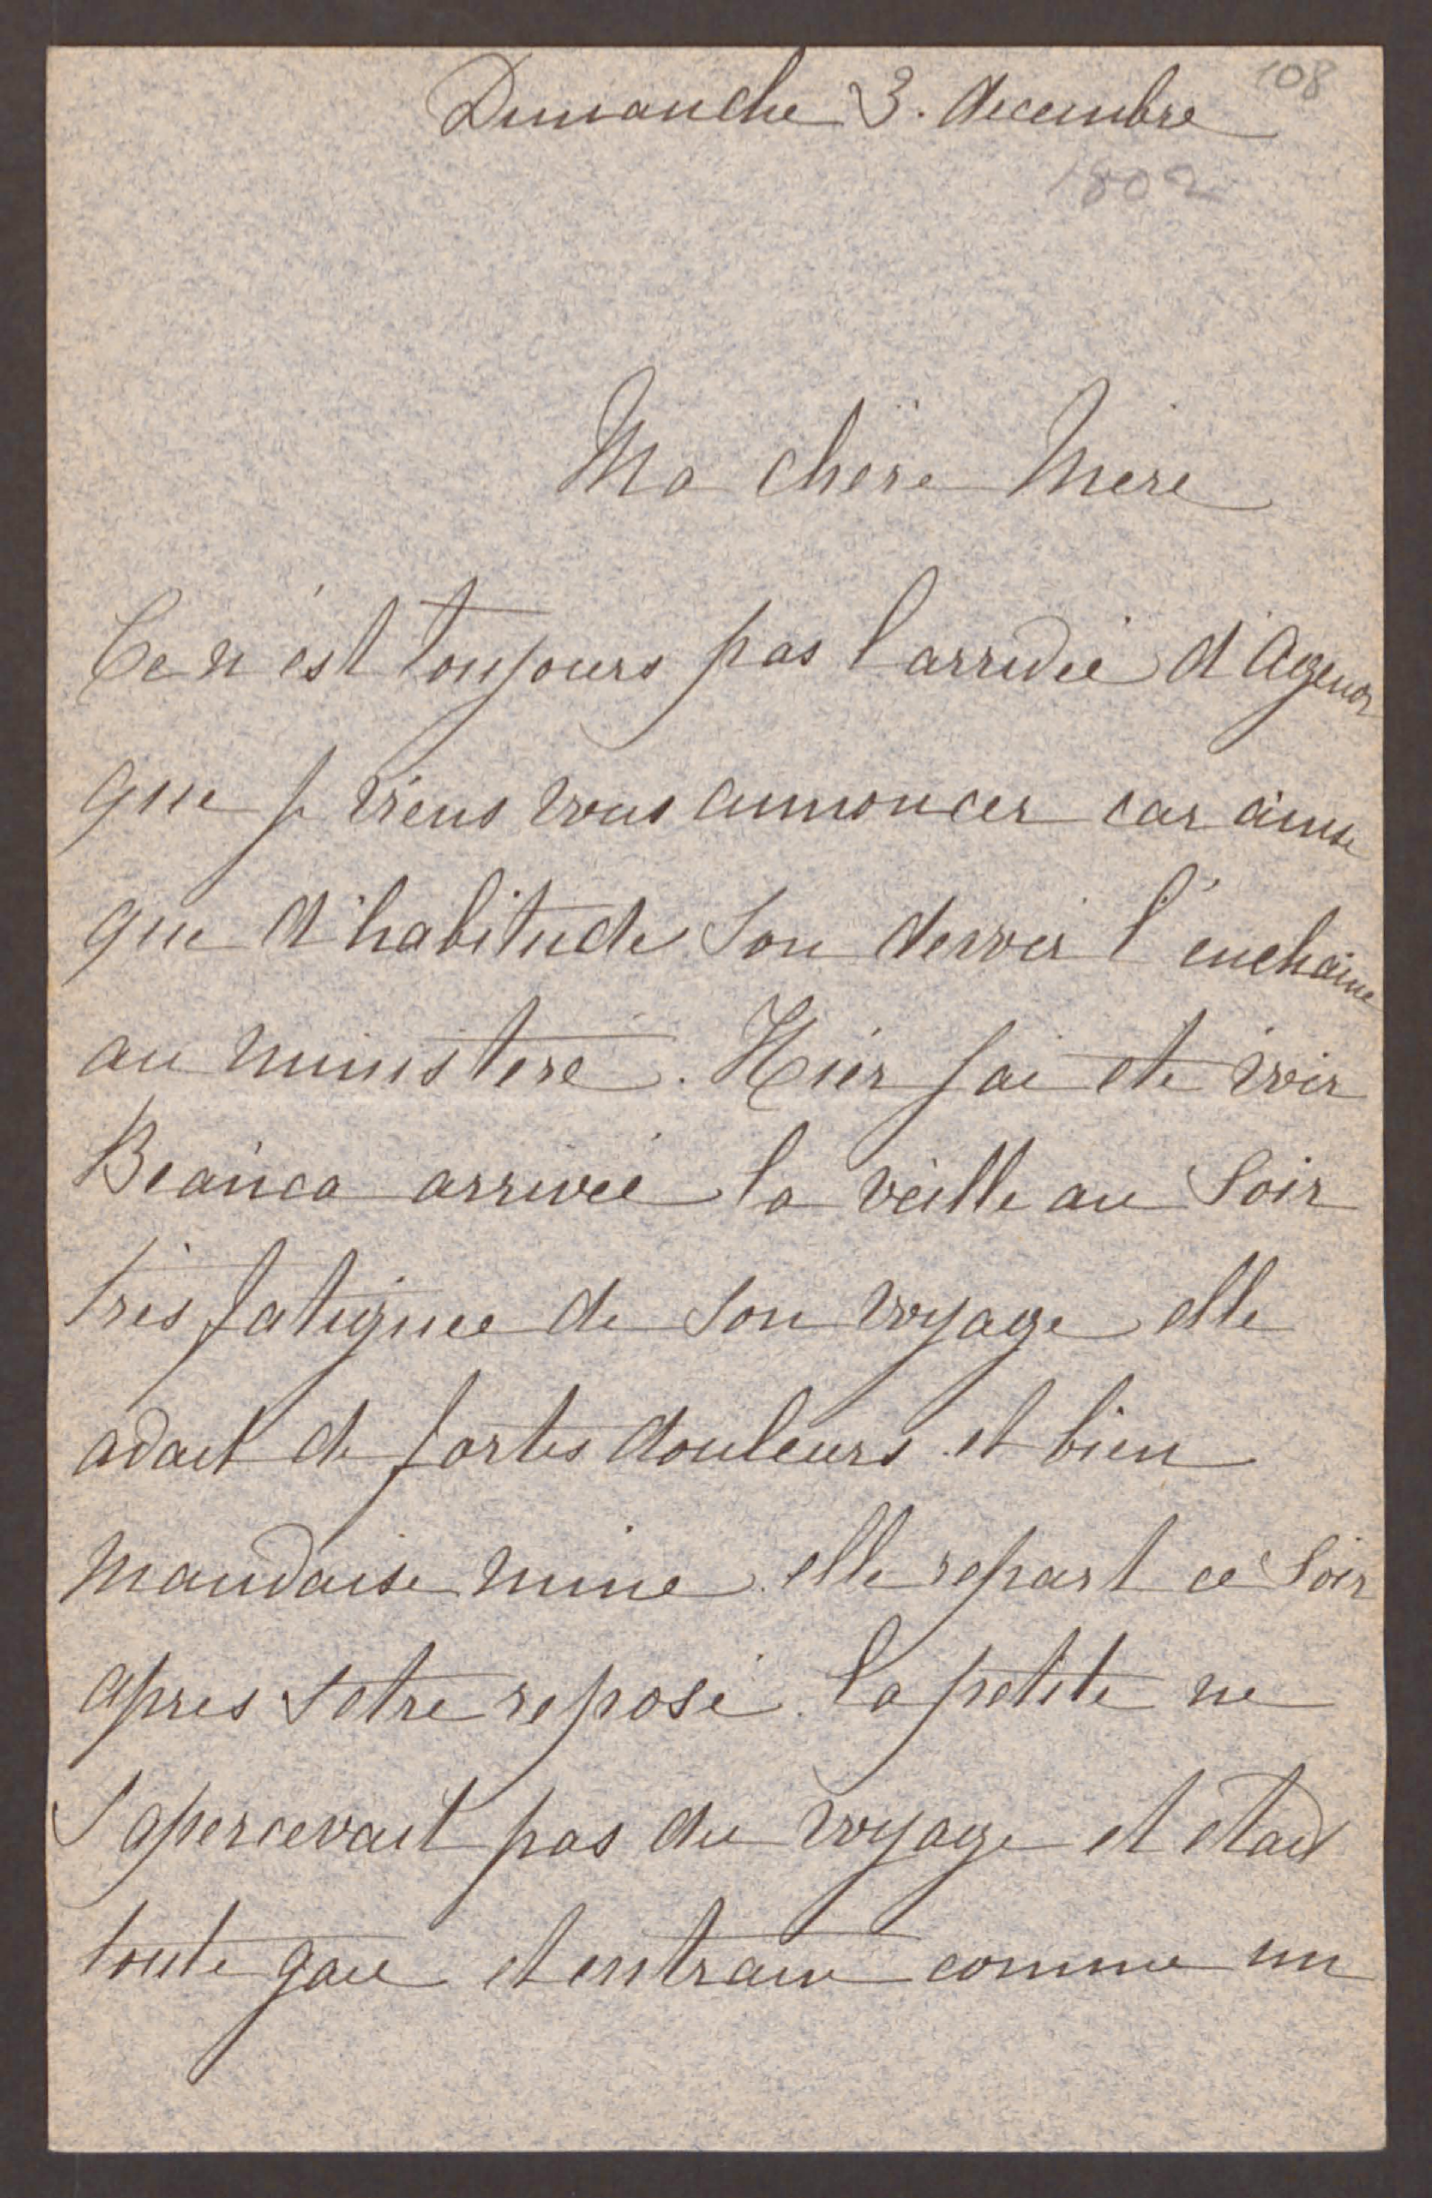 108
Dimanche 3. decembre
1802
Ma chère Mere
Ce n'est toujours pas l'arrivée d'Agenor
que je viens vous annoncer car ainsi
que d'habitude son devoir l'enchaine
au ministere. Hier j'ai ete voir
Beanca arrivée la veille au soir
très fatiguée de son voyage elle
avait de fortes douleurs et bien
mauvaise mine elle repart ce soir
apres s'etre reposé. la petite ne
s'apercevait pas du voyage et etait
toute gaie et entrain comme un